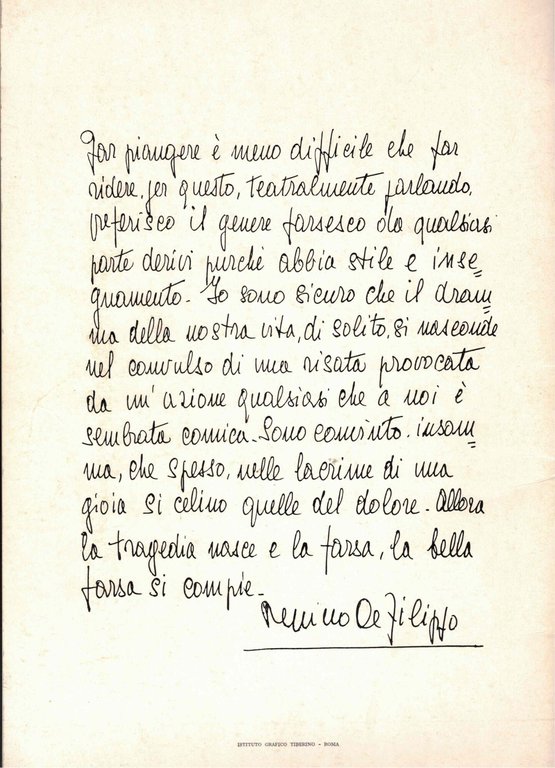 Far piangere è meno difficile che far
ridere, per questo, teatralmente parlando,
preferisco il genere farsesco da qualsiasi
parte derivi purché abbia stile e inse=
gnamento. Io sono sicuro che il dram=
ma della nostra vita, di solito, si nasconde
nel convulso di una risata provocata
da un'azione qualsiasi che a noi è
sembrata comica. Sono convinto, insom=
ma, che spesso, nelle lacrime di una
gioia si celino quelle del dolore. Allora
la tragedia nasce e la farsa, la bella
farsa si compie.
Peppino De Filippo
ISTITUTO GRAFICO TIBERINO - ROMA